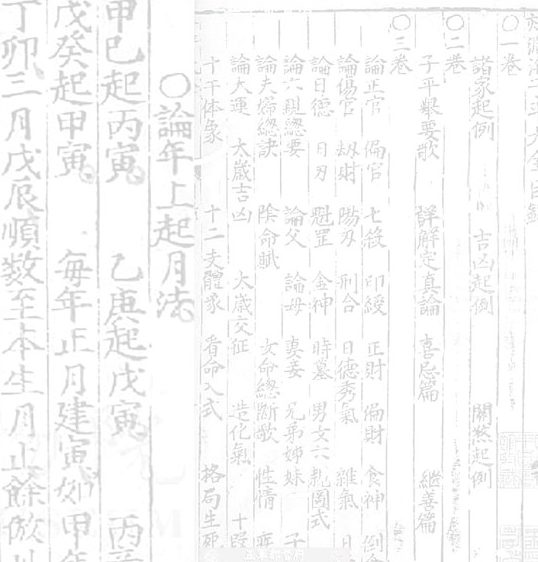 淵海子平大全目錄
〇一巻
諸家起例 吉凶起例 關煞起例
〇二巻
子平舉要歌 詳解定真論 喜忌篇 繼善篇
〇三巻
論正官 偏官 七殺 印綬 正財 偏財 食神 倒食
論傷官 刼財 陽刃 刑合 日德秀氣 雜氣 日
論日德 日刃 魁罡 金神 時墓 男女六 圖式
論六親總要 論父 論母 妻妾 兄弟姊妹 子
論夫婦總訣 陰命賦 女命總斷歌 性情 疾
論大運 太歲吉凶 大歲交征 造化氣 十段
十干体象 十二支體象 看命入式 格局生死
〇論年上起月法
甲己起丙寅 乙庚起戊寅 丙
戊癸起甲寅 每年正月建寅如甲年
丁卯三月戊辰順數至本生月止餘倣